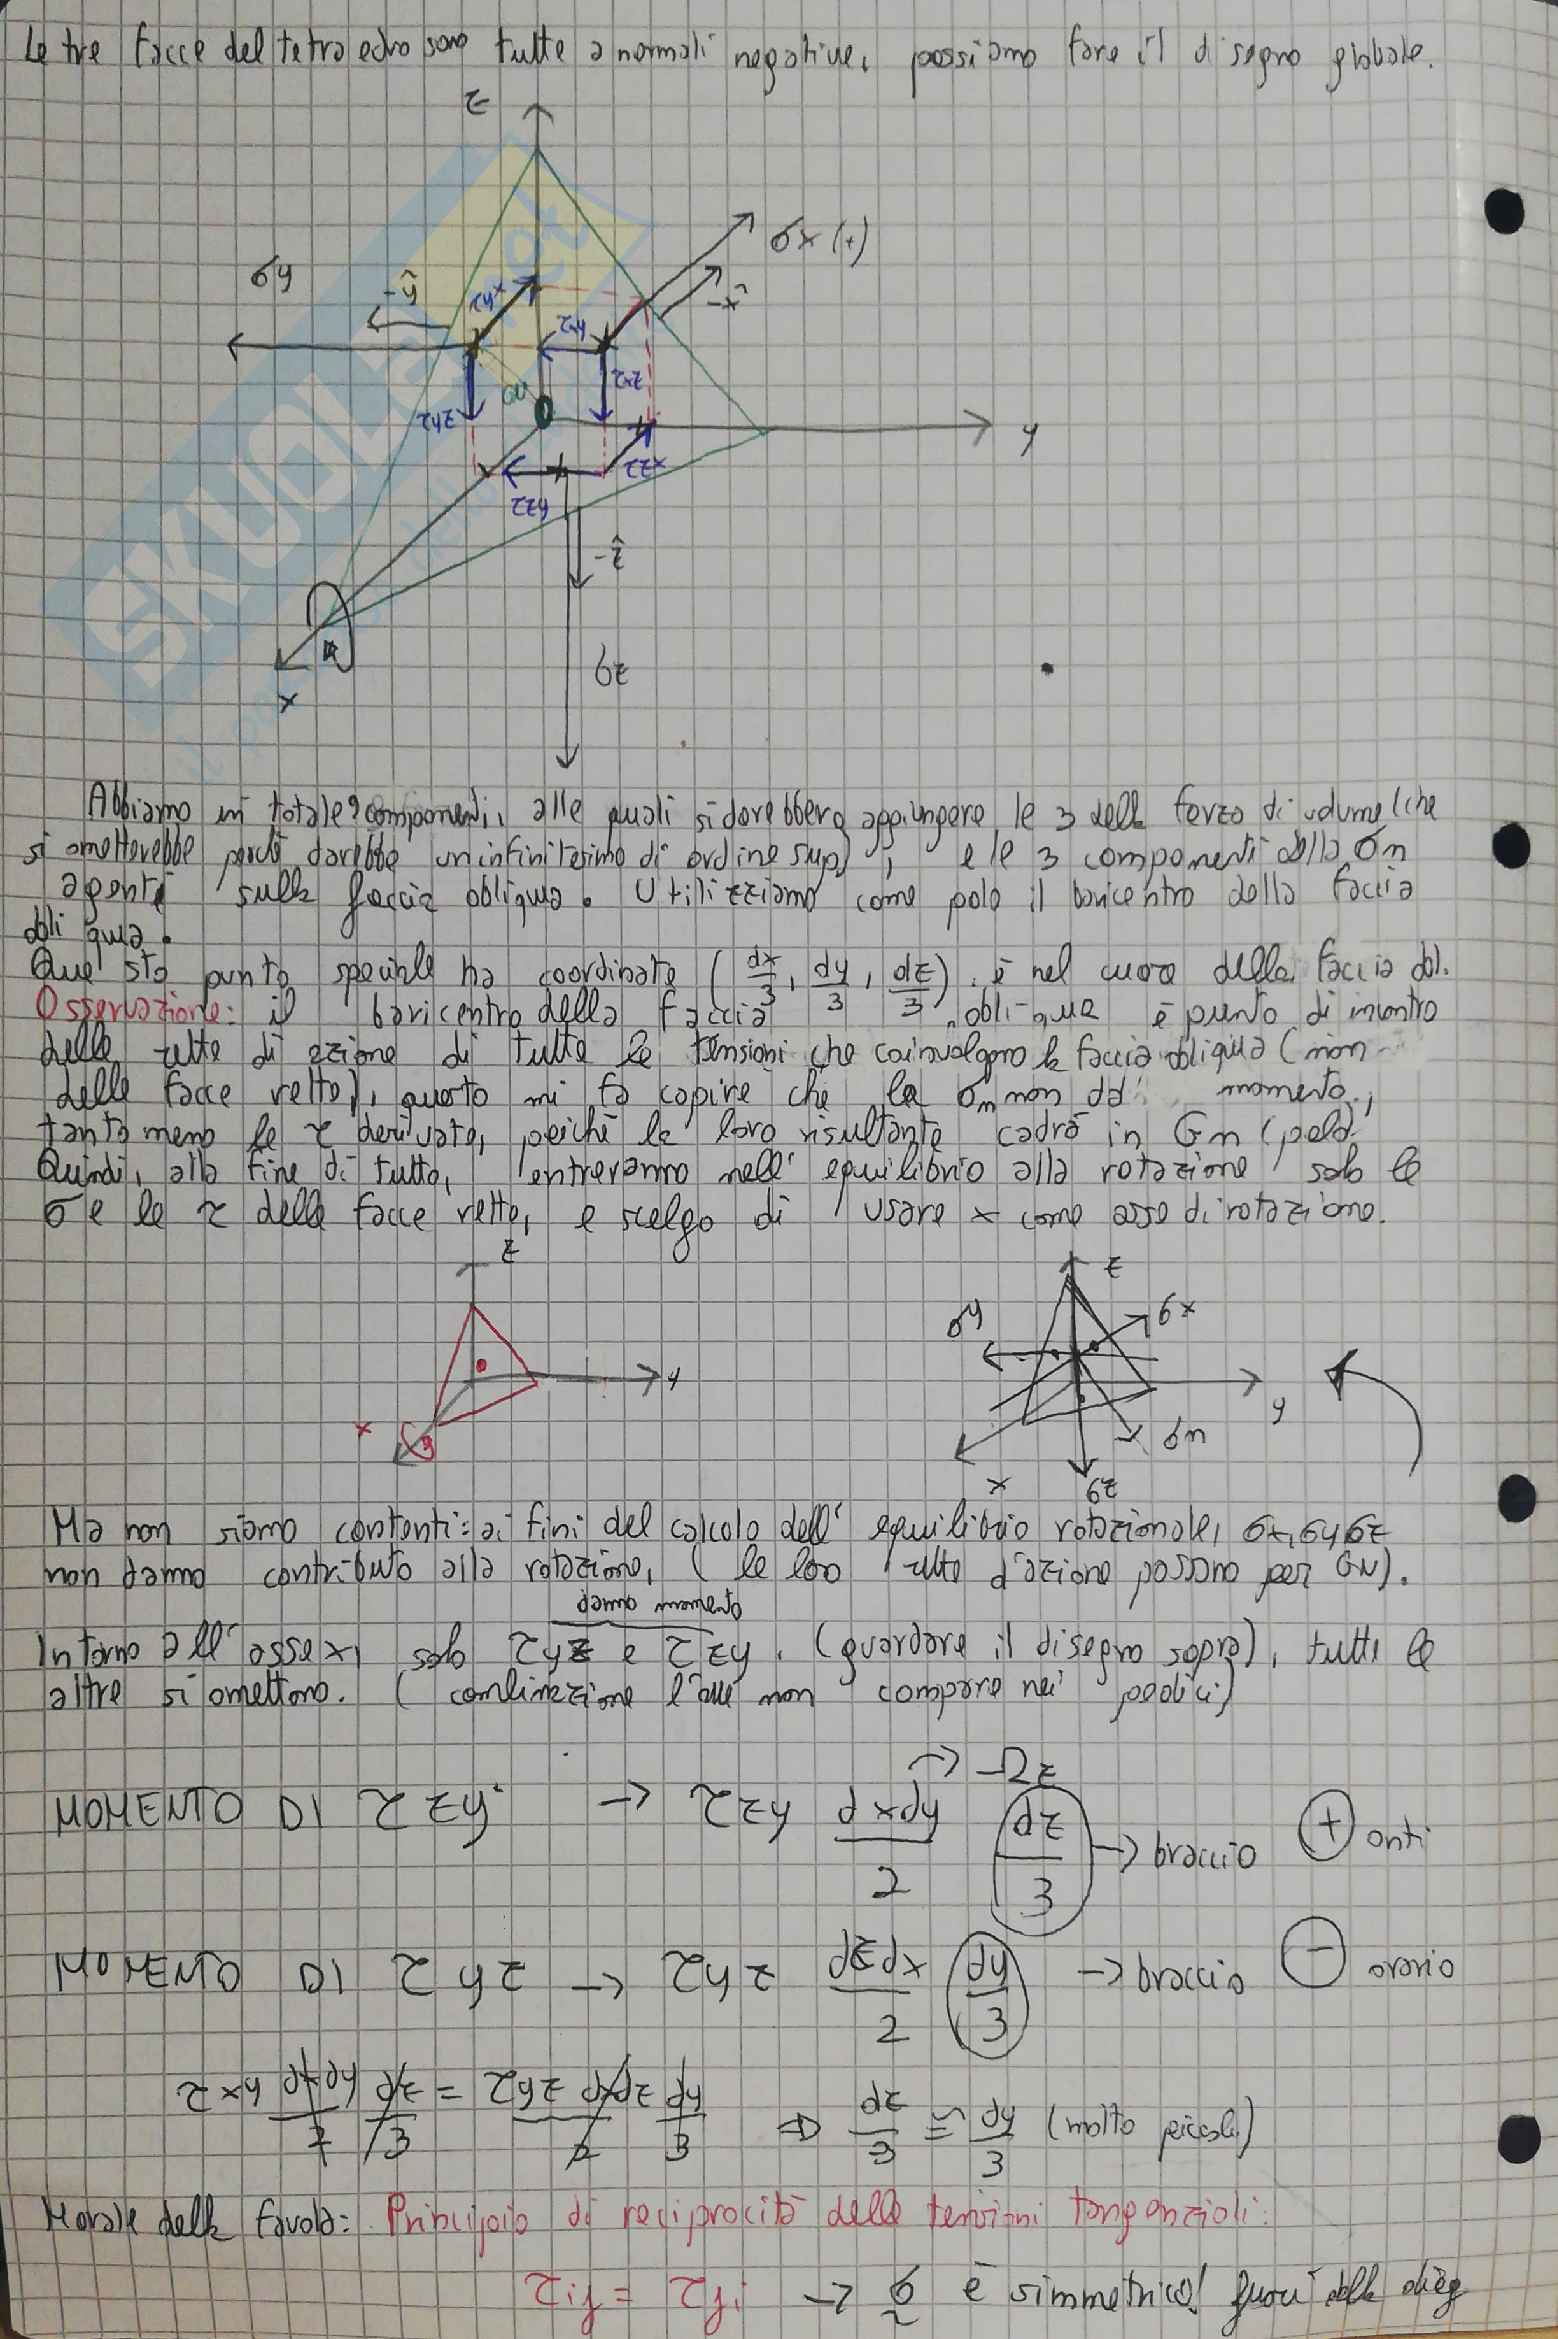 Le tre facce del tetraedro sono tutte a normali negative, possiamo fare il disegno globale.
z
σx (+)
σy
-ŷ
-x̂
τyx
τxy
τxz
τyz
GN
O
y
τzx
τzy
-ẑ
σz
x
SKUOLA.net
Abbiamo in totale 9 componenti, alle quali si dovrebbero aggiungere le 3 della forza di volume (che
si ometterebbe perché darebbe un infinitesimo di ordine sup), e le 3 componenti della σn
agenti sulla faccia obliqua. Utilizziamo come polo il baricentro della faccia
obliqua.
Questo punto speciale ha coordinate (dx/3, dy/3, dz/3), è nel cuore della faccia obl.
Osservazione: il baricentro della faccia obliqua è punto di incontro
delle rette di azione di tutte le tensioni che coinvolgono la faccia obliqua (non
delle facce rette), questo mi fa capire che la σn non dà momento,
tanto meno le τ derivate, poiché la loro risultante cadrà in Gn (polo).
Quindi, alla fine di tutto, entreranno nell' equilibrio alla rotazione solo le
σ e le τ delle facce rette, e scelgo di usare x come asse di rotazione.
z
y
x
z
σy
σx
y
σn
x
σz
Ma non siamo contenti: ai fini del calcolo dell' equilibrio rotazionale, σx, σy σz
non danno contributo alla rotazione, (le loro rette d'azione passano per GN).
danno momento
Intorno all' asse x, solo τyz e τzy. (guardare il disegno sopra), tutte le
altre si omettono. ( non compare nei pedici)
→ Ωz
MOMENTO DI τzy → τzy dxdy/2 dz/3 → braccio (+) anti
MOMENTO DI τyz → τyz dzdx/2 dy/3 → braccio (-) orario
τxy dxdy/2 dz/3 = τyz dxdz/2 dy/3 ⇒ dz/3 ≅ dy/3 (molto piccoli)
Morale della favola: Principio di reciprocità delle tensioni tangenziali:
τij = τji → σ è simmetrico! fuori dalla diag